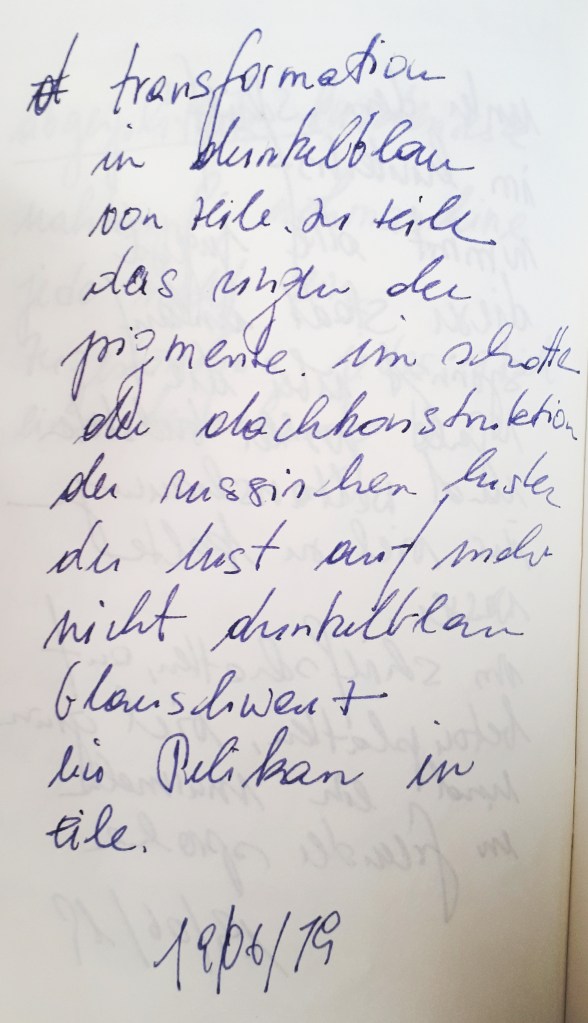 transformation
in dunkelblau
von zeile. zu zeile
das ringen der
pigmente. im schatten
der dachkonstruktion
der russischen
der lust auf mehr
nicht dunkelblau
blauschwarz
ein Pelikan in
eile.
19/06/19